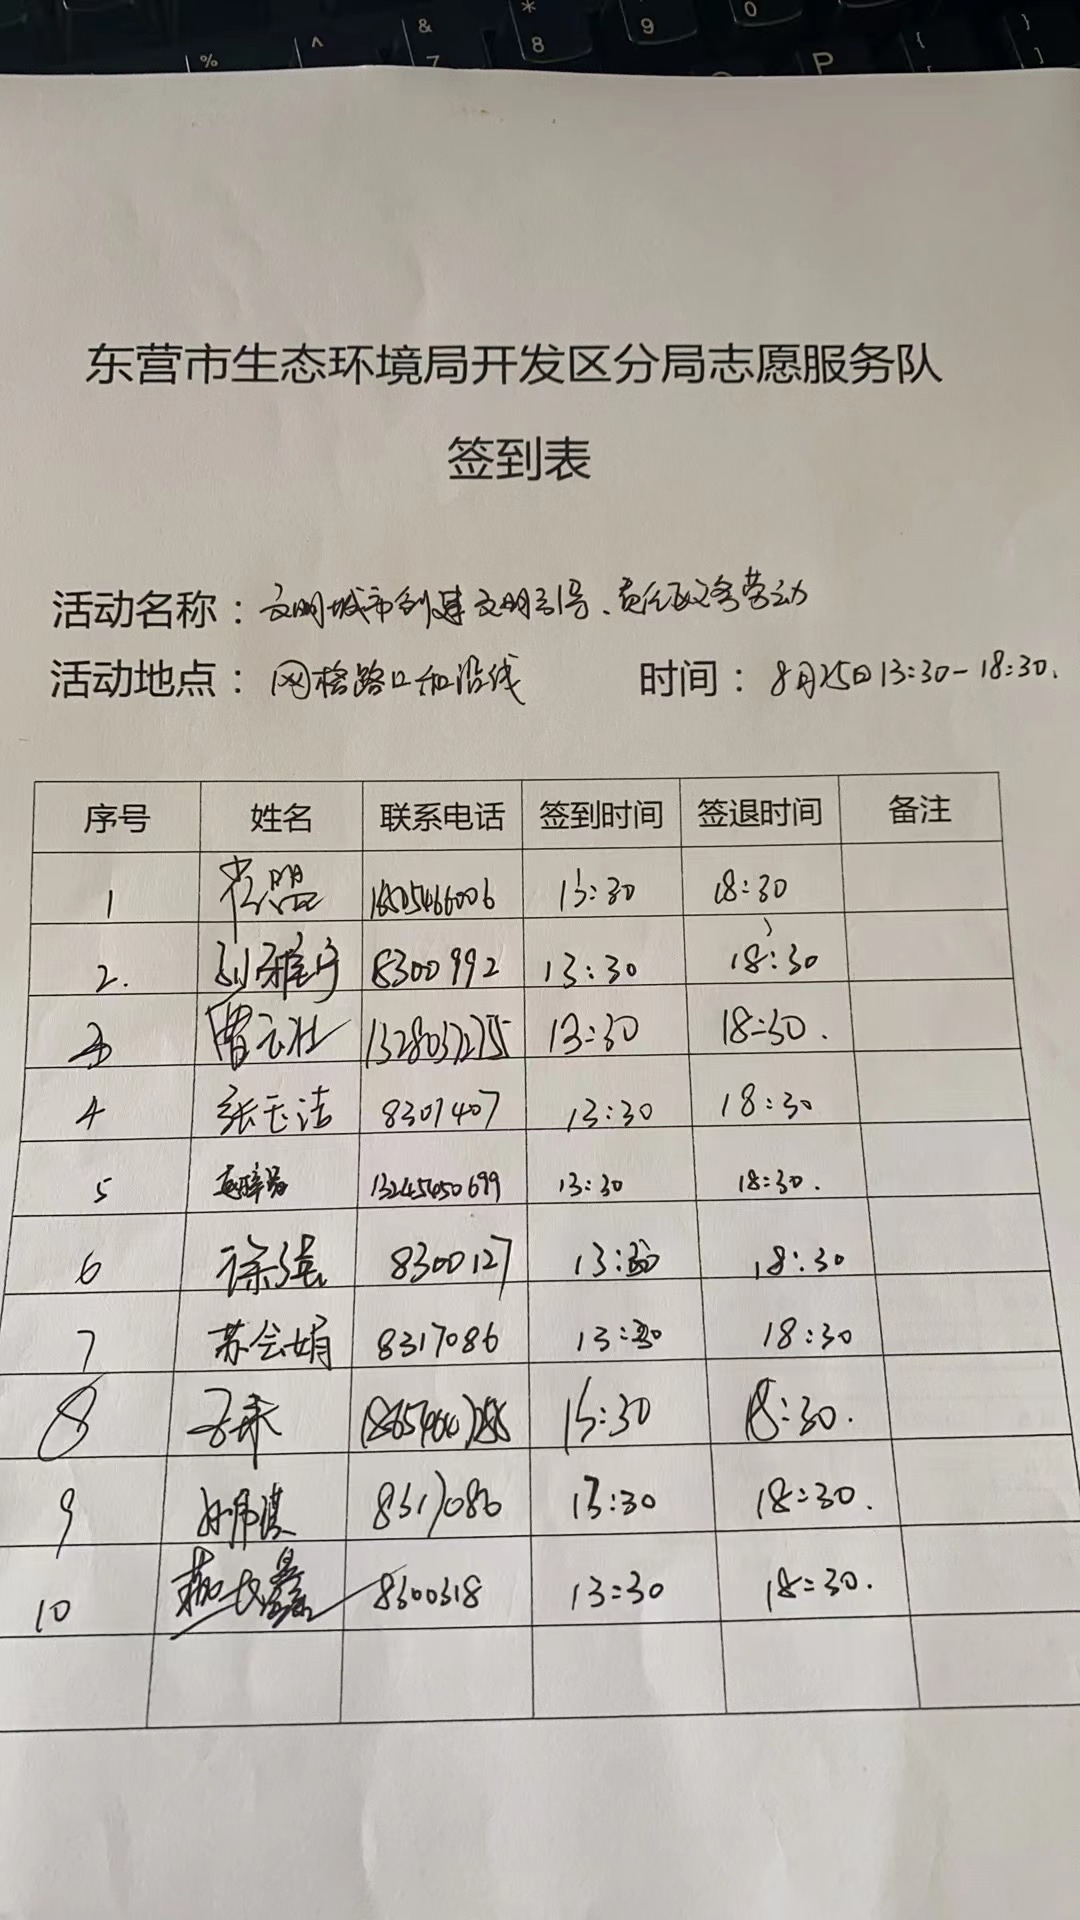 & * 9 0
% ^ 7 8 P { [ } ]
东营市生态环境局开发区分局志愿服务队
签到表
活动名称：文明城市创建文明引导、责任区义务劳动
活动地点：网格路口和沿线 时间：8月25日13:30-18:30.
序号 姓名 联系电话 签到时间 签退时间 备注
1 13:30 18:30
2. 8300992 13:30 18:30
3 曹云壮 13:30 18:30.
4 张玉洁 8301407 13:30 18:30
5 13:30 18:30.
6 徐强 8300127 13:30 18:30
7 苏会娟 8317086 13:30 18:30
8 13:30 18:30.
9 8317086 13:30 18:30.
10 8300318 13:30 18:30.